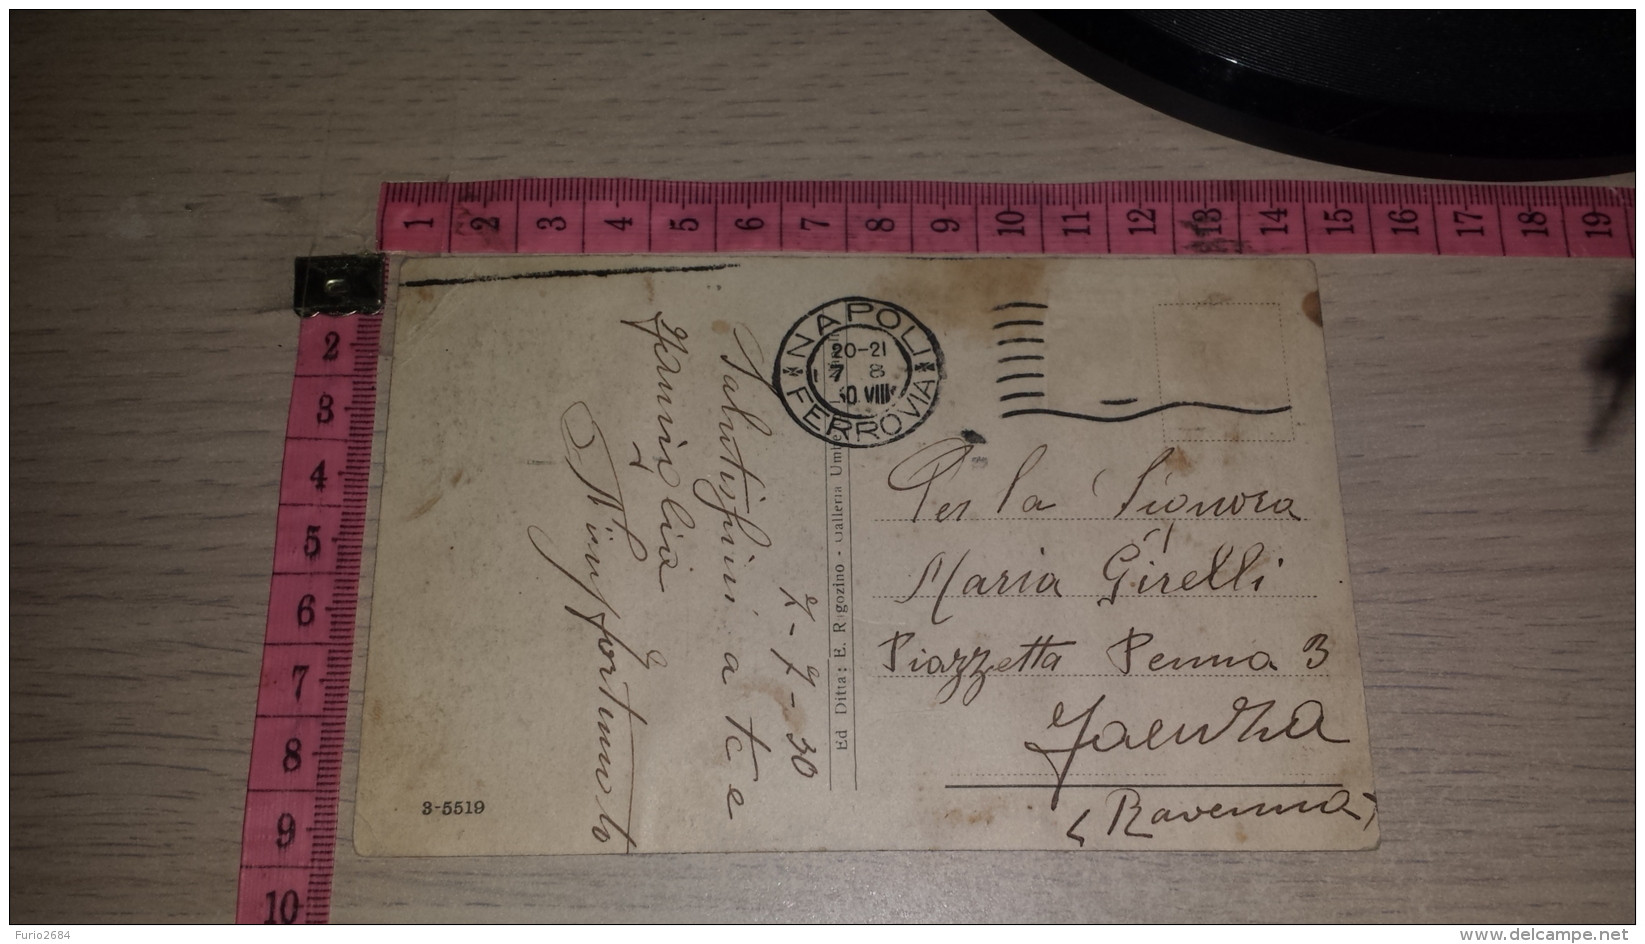 1 2 3 4 5 6 7 8 9 10 11 12 13 14 15 16 17 18 19
2
3
4
5
6
7
8
9
10
NAPOLI
20-21
7 8
30 VIII
FERROVIA
Per la Signora
Maria Girelli
Piazzetta Penna 3
Faenza
(Ravenna)
Ed Ditta: E. Ragozino - Galleria Umbe
7-7-30
Salutissimi a te e
famiglia
3-5519
Furio2684
www.delcampe.net